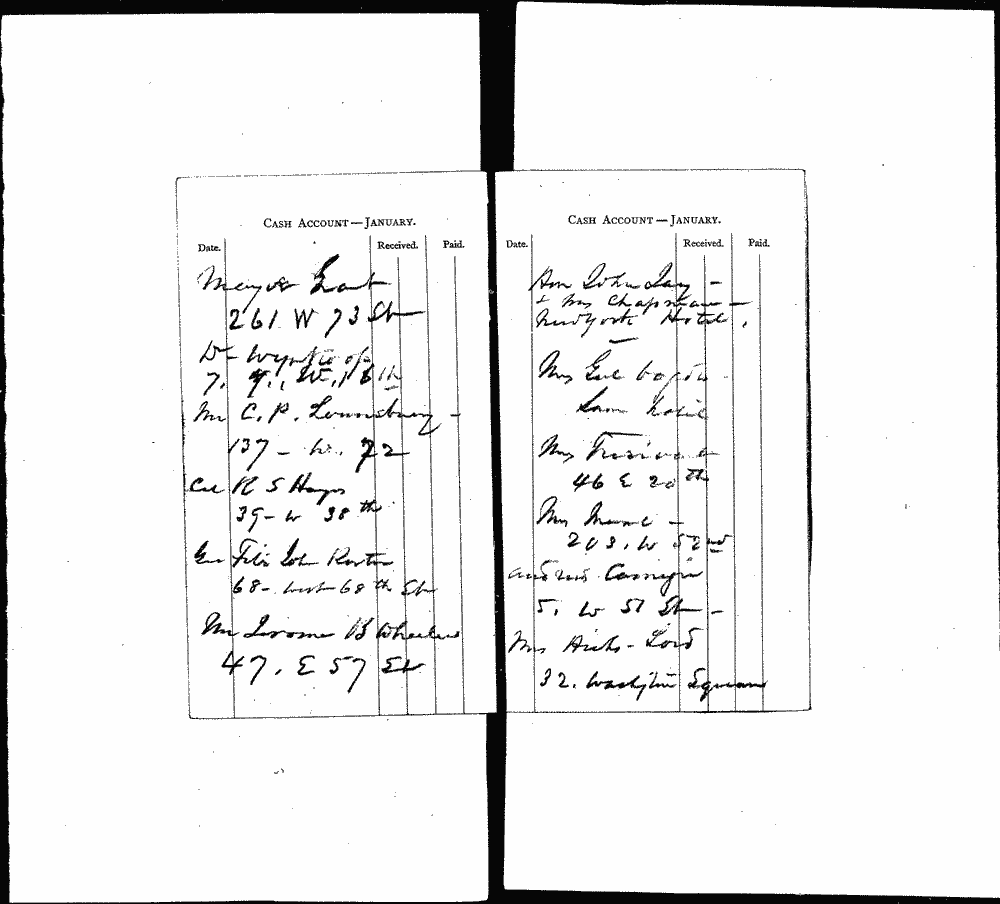 CASH ACCOUNT—JANUARY.
Date. Received. Paid.
Mayor Grant
261 W 73 St
Dr Wynkoop
7.
Mr C. P. Lounsbury -
137 - W. 72
Col R S Hayes
39 - W 38th
Gen Fitz John Porter
68 - West 68th St
Mr Jerome B Wheeler
47. E 57 St
CASH ACCOUNT—JANUARY.
Date. Received. Paid.
Hon John Jay -
+ Mrs Chapman -
New York Hotel.
Mrs
Same hotel
Mrs
46 E 20th
Mrs
203. W 52nd
Andrew Carnegie
5. W 51 St -
Mrs Hicks-Lord
32. Washington Square